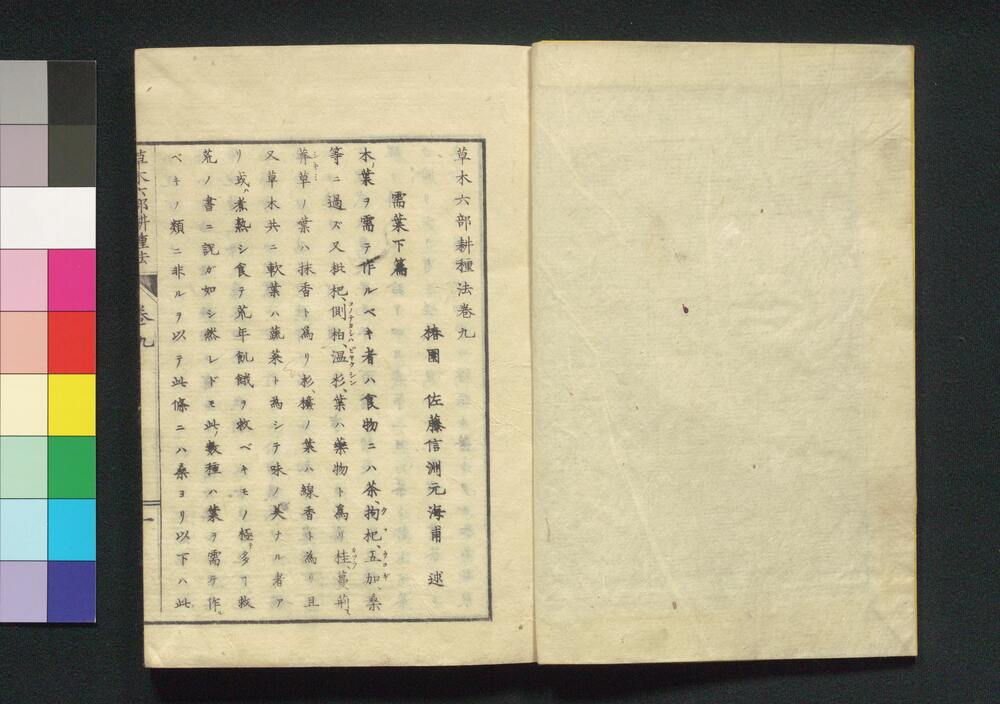 草木六部耕種法巻九
椿園 佐藤信淵元海甫 述
需葉下篇
木ノ葉ヲ需テ作ルベキ者ハ食物ニハ茶、拘杞、五加、桑
等ニ過ズ又枇杷、側柏、温杉、葉ハ藥物ト爲リ桂、蔓荊
莽草ノ葉ハ抹香ト爲リ杉、檜ノ葉ハ線香ト爲リ且
又草木共ニ軟葉ハ蔬菜ト為シテ味ノ美ナル者ア
リ或ハ煮熟シ食テ荒年飢餓ヲ救ベキモノ極テ多ク救
荒ノ書ニ説ガ如シ然レドモ此ノ數種ハ葉ヲ需テ作ル
ベキノ類ニ非ルヲ以テ此條ニハ桑ヨリ以下ハ此
草木六部耕種法 巻九 一